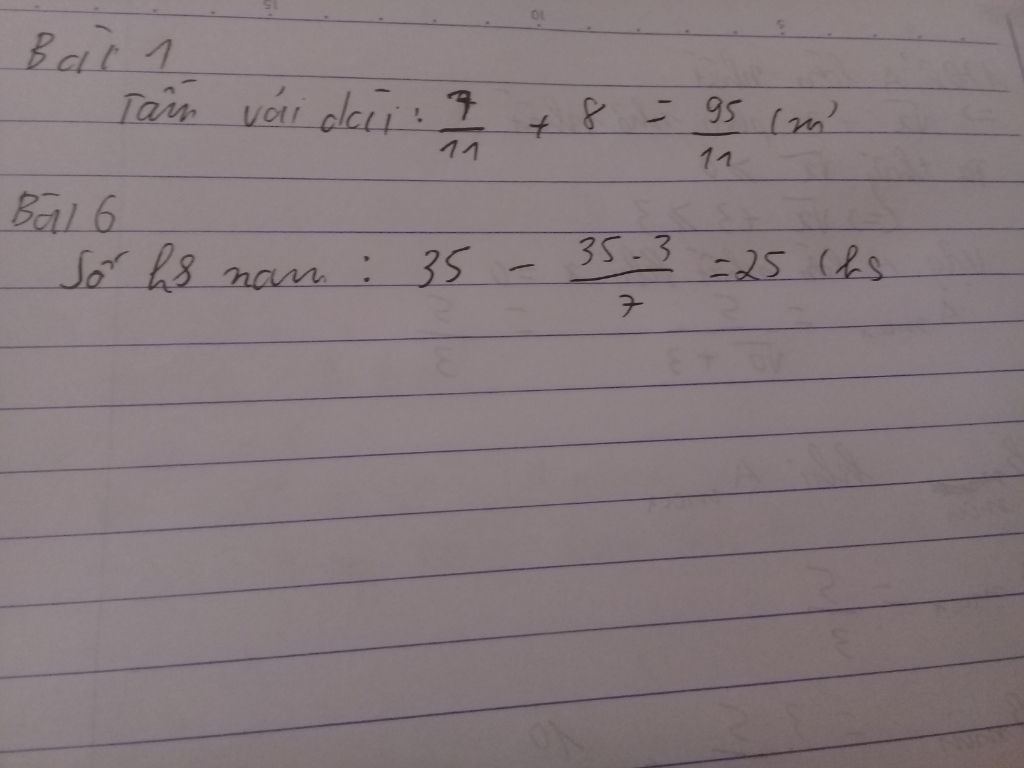 Bài 1
Tấm vải dài: 7/11 + 8 = 95/11 (m)
Bài 6
Số hs nam : 35 - 35.3/7 = 25 (hs